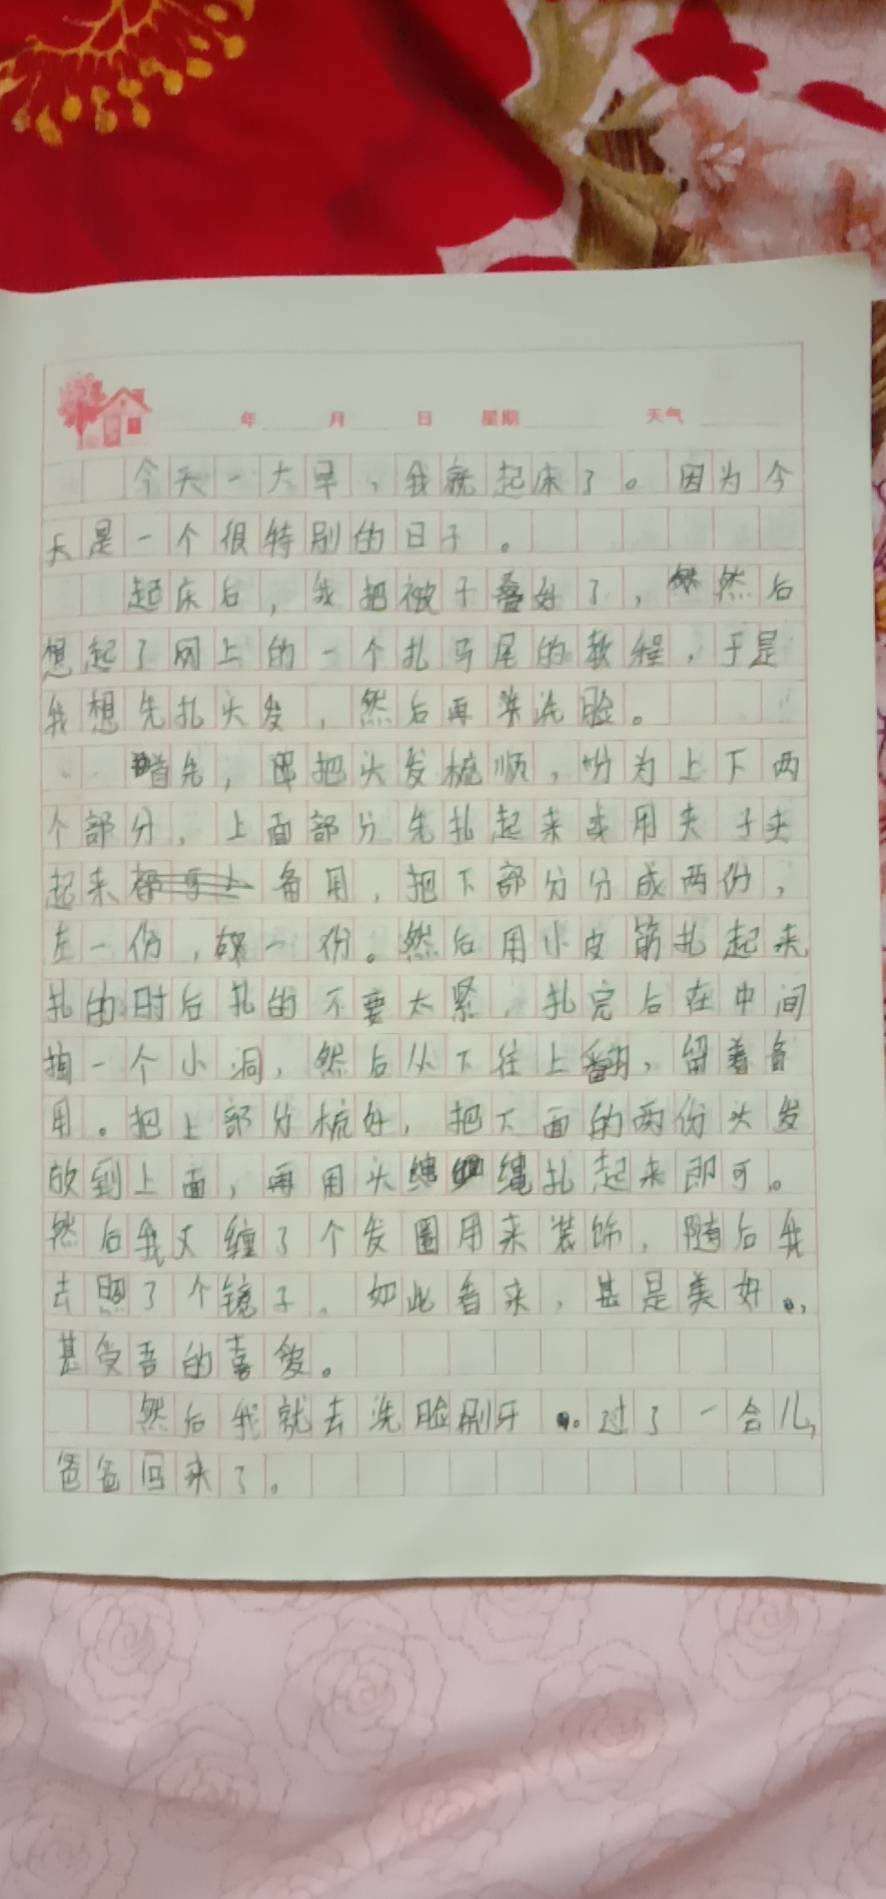 年 月 日 星期 天气
今天一大早，我就起床了。因为今
天是一个很特别的日子。
起床后，我把被子叠好了，然后
想起了网上的一个扎马尾的教程，于是
我想先扎头发，然后再来洗脸。
首先，要把头发梳顺，分为上下两
个部分，上面部分先扎起来或用夹子夹
起来备用，把下部分分成两份，
左一份，右一份。然后用小皮筋扎起来
扎的时后扎的不要太紧，扎完后在中间
掏一个小洞，然后从下往上翻，留着备
用。把上部分梳好，把下面的两份头发
放到上面，再用头绳扎起来即可。
然后我又缠了个发圈用来装饰，随后我
去照了个镜子。如此看来，甚是美好，
甚受吾的喜爱。
然后我就去洗脸刷牙。过了一会儿，
爸爸回来了。